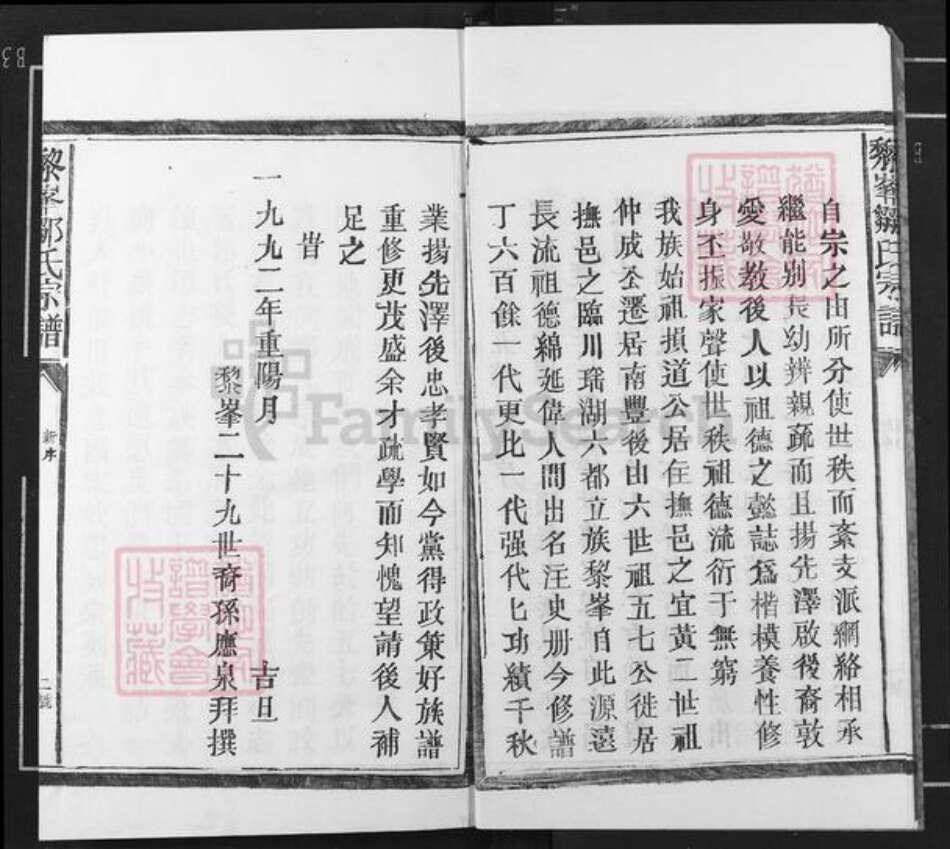 黎峯鄒氏宗譜
自宗之由所分使世秩而紊支派網絡相承
繼能别長幼辨親疏而且揚先澤啟後裔敦
愛敬教後人以祖德之懿誌爲楷模養性修
身丕振家聲使世秩祖德流衍于無窮
我族始祖損道公居在撫邑之宜黃二世祖
仲成公遷居南豐後由六世祖五七公徙居
撫邑之臨川瑶湖六都立族黎峯自此源遠
長流祖德綿延偉人間出名注史册今修譜
丁六百餘一代更比一代强代匕功績千秋
業揚先澤後忠孝賢如今黨得政策好族譜
重修更茂盛余才疏學而知愧望請後人補
足之
旹
一九九二年重陽月 吉旦
黎峯二十九世裔孫應泉拜撰
黎峯鄒氏宗譜
新序
二號
譜學會收藏
譜學會收藏
FamilySearch
B3